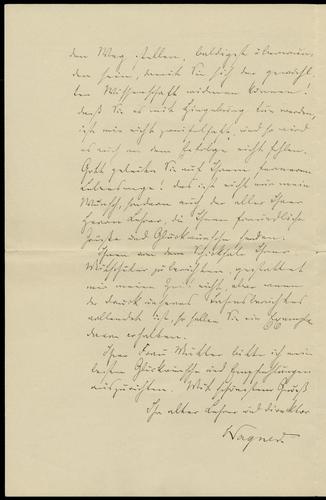 den Weg stellen, baldigst überwun-
den sein, damit Sie sich der gewähl-
ten Wissenschaft widmen können!
Daß Sie es mit Hingebung tun werden,
ist mir nicht zweifelhaft, und so wird
es auch an dem Erfolge nicht fehlen.
Gott geleite Sie auf Ihrem ferneren
Lebenswege! Das ist nicht nur mein
Wunsch, sondern auch der aller Ihrer
Herren Lehrer, die Ihnen freundliche
Grüße und Glückwünsche senden.
Ihnen von dem Schicksale Ihrer
Mitschüler zu berichten, gestattet
mir meine Zeit nicht, aber wenn
der Druck unseres Jahresberichtes
vollendet ist, so sollen Sie ein Exemplar
davon erhalten.
Ihrer Frau Mutter bitte ich meine
besten Glückwünsche und Empfehlungen
auszurichten. Mit schönstem Gruß
Ihr alter Lehrer und Direktor
Wagner.